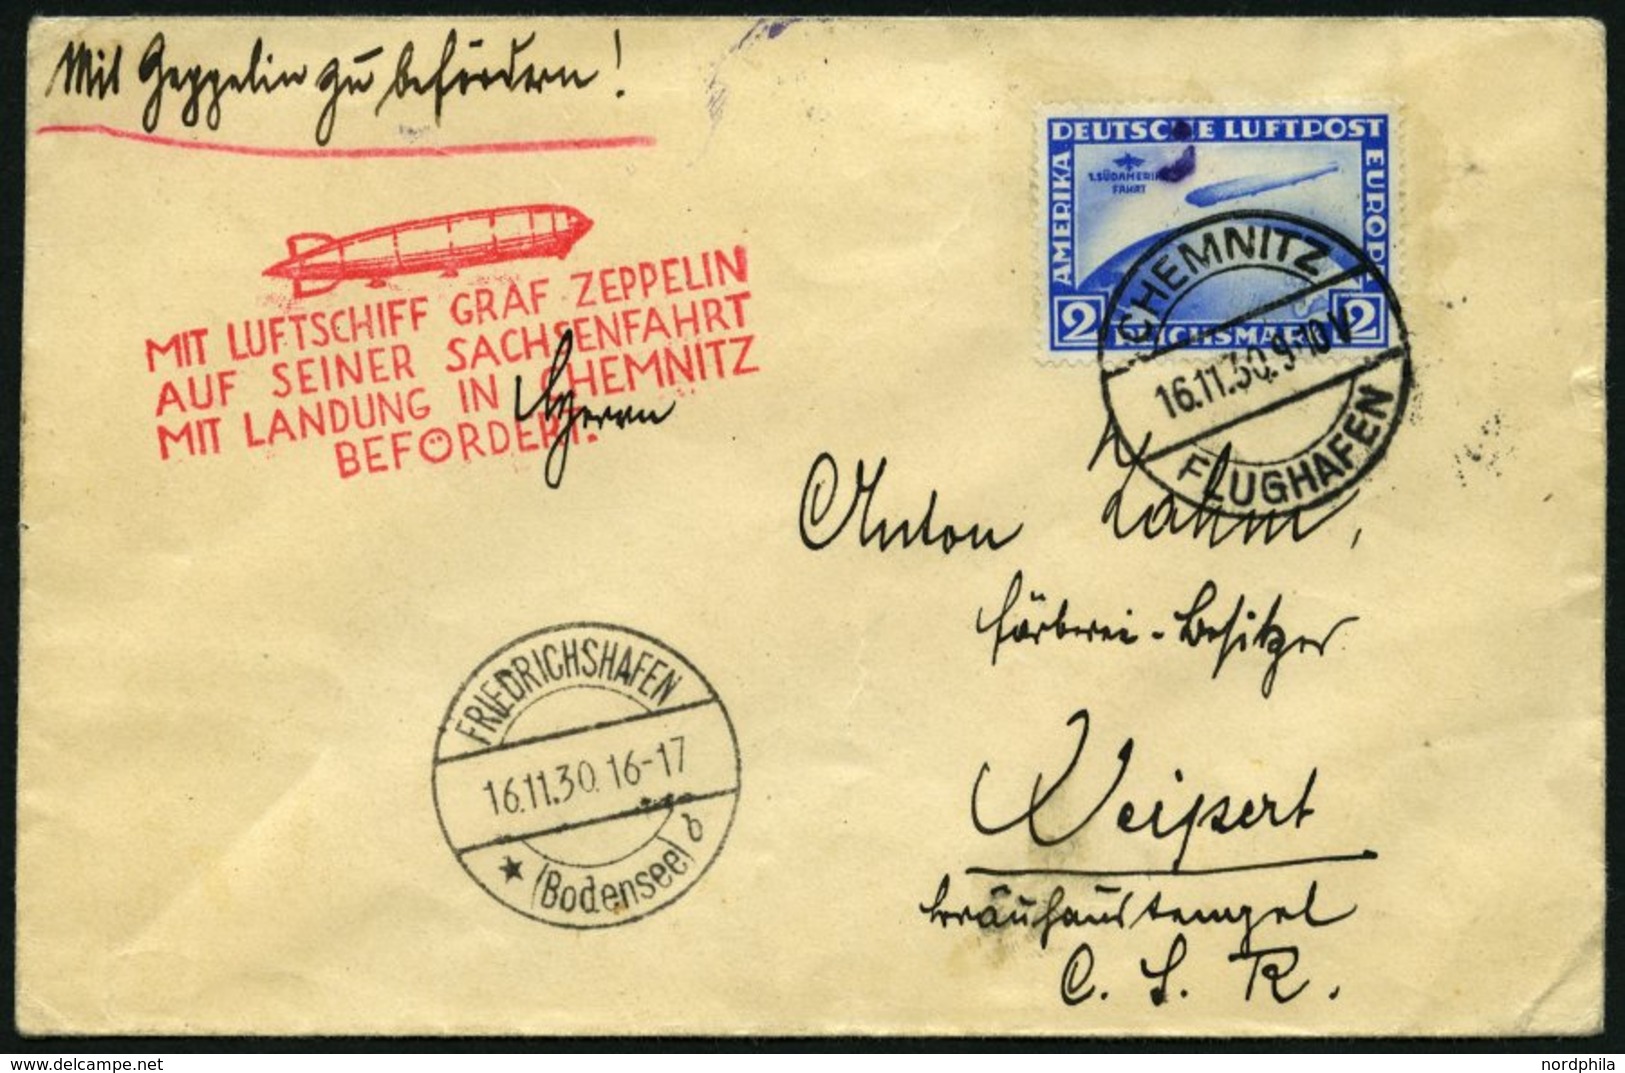 Mit Zeppelin zu befördern!
MIT LUFTSCHIFF GRAF ZEPPELIN
AUF SEINER SACHSENFAHRT
MIT LANDUNG IN CHEMNITZ
BEFÖRDERT.
DEUTSCHE LUFTPOST
AMERIKA
EUROPA
1. SÜDAMERIKA
FAHRT
2 REICHSMARK 2
CHEMNITZ
16.11.30. 9-10 V
FLUGHAFEN
Herrn
Anton Lahm,
Färberei-Besitzer
Weipert
C. S. R.
FRIEDRICHSHAFEN
16.11.30. 16-17
★ (Bodensee) b
hosted on delcampe.net
nordphila